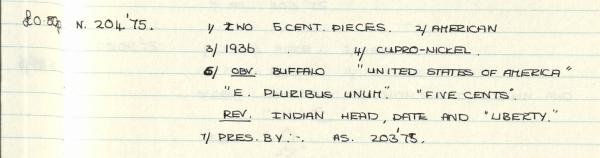 £0.50p N. 204'75. 1/ TWO 5 CENT. PIECES. 2/ AMERICAN
3/ 1936 . 4/ CUPRO-NICKEL.
6/ OBV. BUFFALO "UNITED STATES OF AMERICA"
"E. PLURIBUS UNUM". "FIVE CENTS".
REV. INDIAN HEAD, DATE AND "LIBERTY."
7/ PRES. BY :-. AS. 203'75.